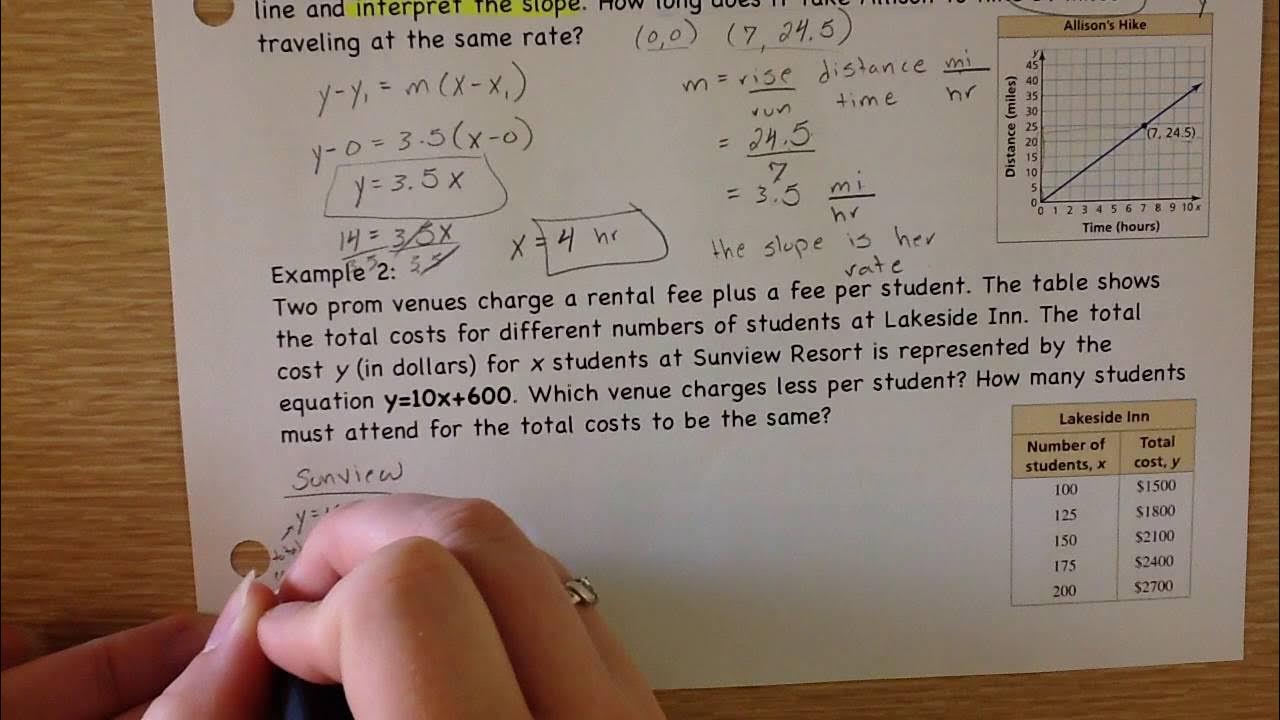 line and interpret the slope. How long does it take Allison to hike
traveling at the same rate? (0,0) (7, 24.5)
y-y₁ = m(x-x₁)
y-0 = 3.5(x-0)
y = 3.5x
14 = 3.5x
3.5 3.5
x = 4 hr
m = rise distance mi
run time hr
= 24.5
7
= 3.5 mi
hr
the slope is her
rate
Allison's Hike
Distance (miles)
y
45
40
35
30
25
20
15
10
5
0
(7, 24.5)
0 1 2 3 4 5 6 7 8 9 10 x
Time (hours)
Example 2:
Two prom venues charge a rental fee plus a fee per student. The table shows
the total costs for different numbers of students at Lakeside Inn. The total
cost y (in dollars) for x students at Sunview Resort is represented by the
equation y=10x+600. Which venue charges less per student? How many students
must attend for the total costs to be the same?
Sunview
y=
Lakeside Inn
Number of students, x Total cost, y
100 $1500
125 $1800
150 $2100
175 $2400
200 $2700